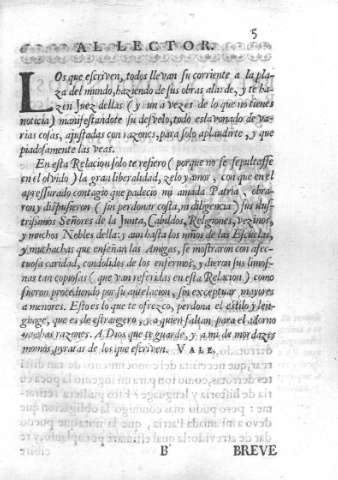 5
AL LECTOR.
LOs que escriven, todos llevan su corriente a la pla-
za del mundo, haziendo de sus obras alarde, y te ha-
zen Juez dellas (y un a vezes de lo que no tienes
noticia) manifestandote su desvelo, todo eslavonado de va-
rias cosas, ajustadas con razones, para solo aplaudirte, y que
piadosamente las veas.
En esta Relacion solo te refiero (porque no se sepultasse
en el olvido) la gran liberalidad, zelo y amor, con que en el
apressurado contagio que padeciò mi amada Patria, obra-
ron y dispusieron (sin perdonar costa, ni diligencia) sus ilus-
trissimos Señores de la Junta, Cabildos, Religiones, vezinos,
y muchos Nobles della; y aun hasta los niños de las Escuelas,
y muchachas que enseñan las Amigas, se mostraron con afec-
tuosa caridad, condolidos de los enfermos, y dieron sus limos-
nas tan copiosas (que van referidas en esta Relacion) como
fueron procediendo por su antelacion, sin exceptuar mayores
a menores. Esto es lo que te ofrezco, perdona el estilo y len-
guage, que es de estrangero, a quien faltan para el adorno
muchas razones. A Dios que te guarde, y a mi de mordazes
momos, pyratas de los que escriven. VALE.
B
BREVE